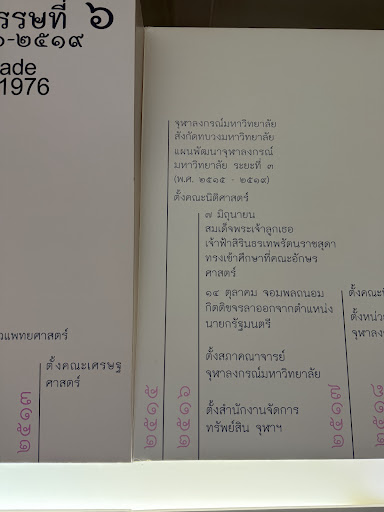 รรษที่ ๖
-๒๕๑๙
ade
1976
วแพทยศาสตร์
ตั้งคณะเศรษฐ
ศาสตร์
๒๕๑๓
จุฬาลงกรณ์มหาวิทยาลัย
สังกัดทบวงมหาวิทยาลัย
แผนพัฒนาจุฬาลงกรณ์
มหาวิทยาลัย ระยะที่ ๓
(พ.ศ. ๒๕๑๕ - ๒๕๑๙)
ตั้งคณะนิติศาสตร์
๒๕๑๕
๗ มิถุนายน
สมเด็จพระเจ้าลูกเธอ
เจ้าฟ้าสิรินธรเทพรัตนราชสุดา
ทรงเข้าศึกษาที่คณะอักษร
ศาสตร์
๑๔ ตุลาคม จอมพลถนอม
กิตติขจรลาออกจากตำแหน่ง
นายกรัฐมนตรี
ตั้งสภาคณาจารย์
จุฬาลงกรณ์มหาวิทยาลัย
ตั้งสำนักงานจัดการ
ทรัพย์สิน จุฬาฯ
๒๕๑๖
ตั้งคณะ
ตั้งหน่ว
จุฬาลง
๒๕๑๗
๒๕๑๘